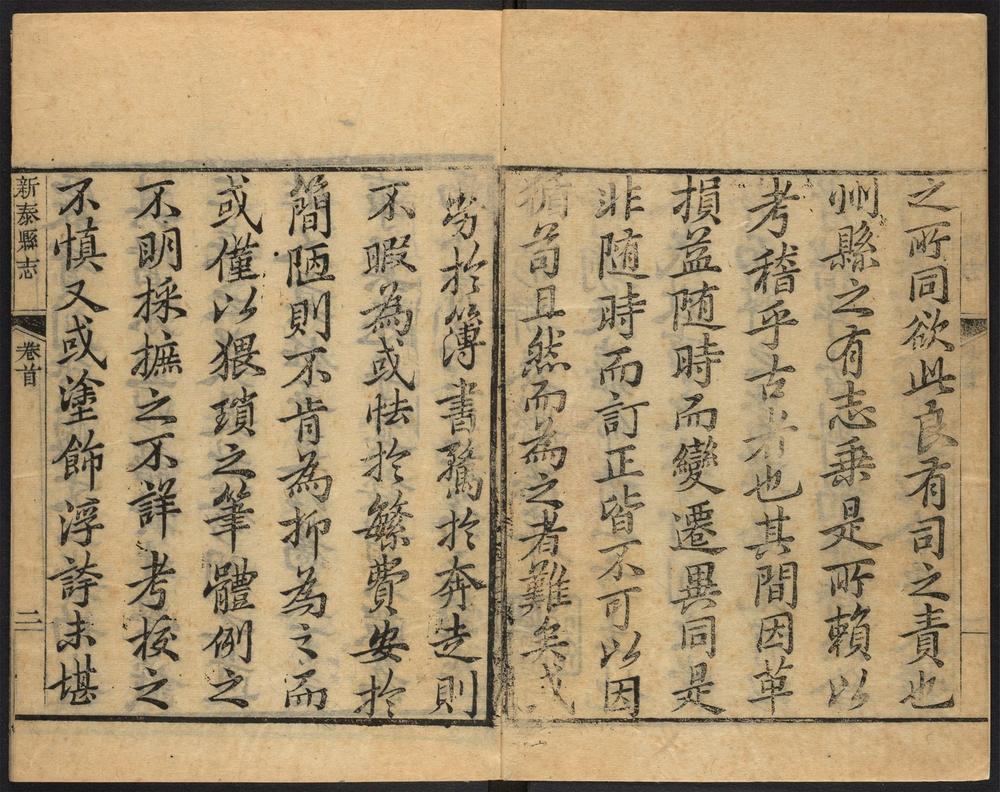 之所同欲此良有司之責也
州縣之有志乗是所賴以
考稽乎古者也其間因革
損益随時而變遷異同是
非随時而訂正皆不可以因
循苟且然而為之者難矣或
勞於簿書騖於奔走則
不暇為或怯於繁費安於
簡陋則不肯為抑為之而
或僅以猥瑣之筆體例之
不明採摭之不詳考挍之
不慎又或塗飾浮誇未堪
新泰縣志
卷首
二